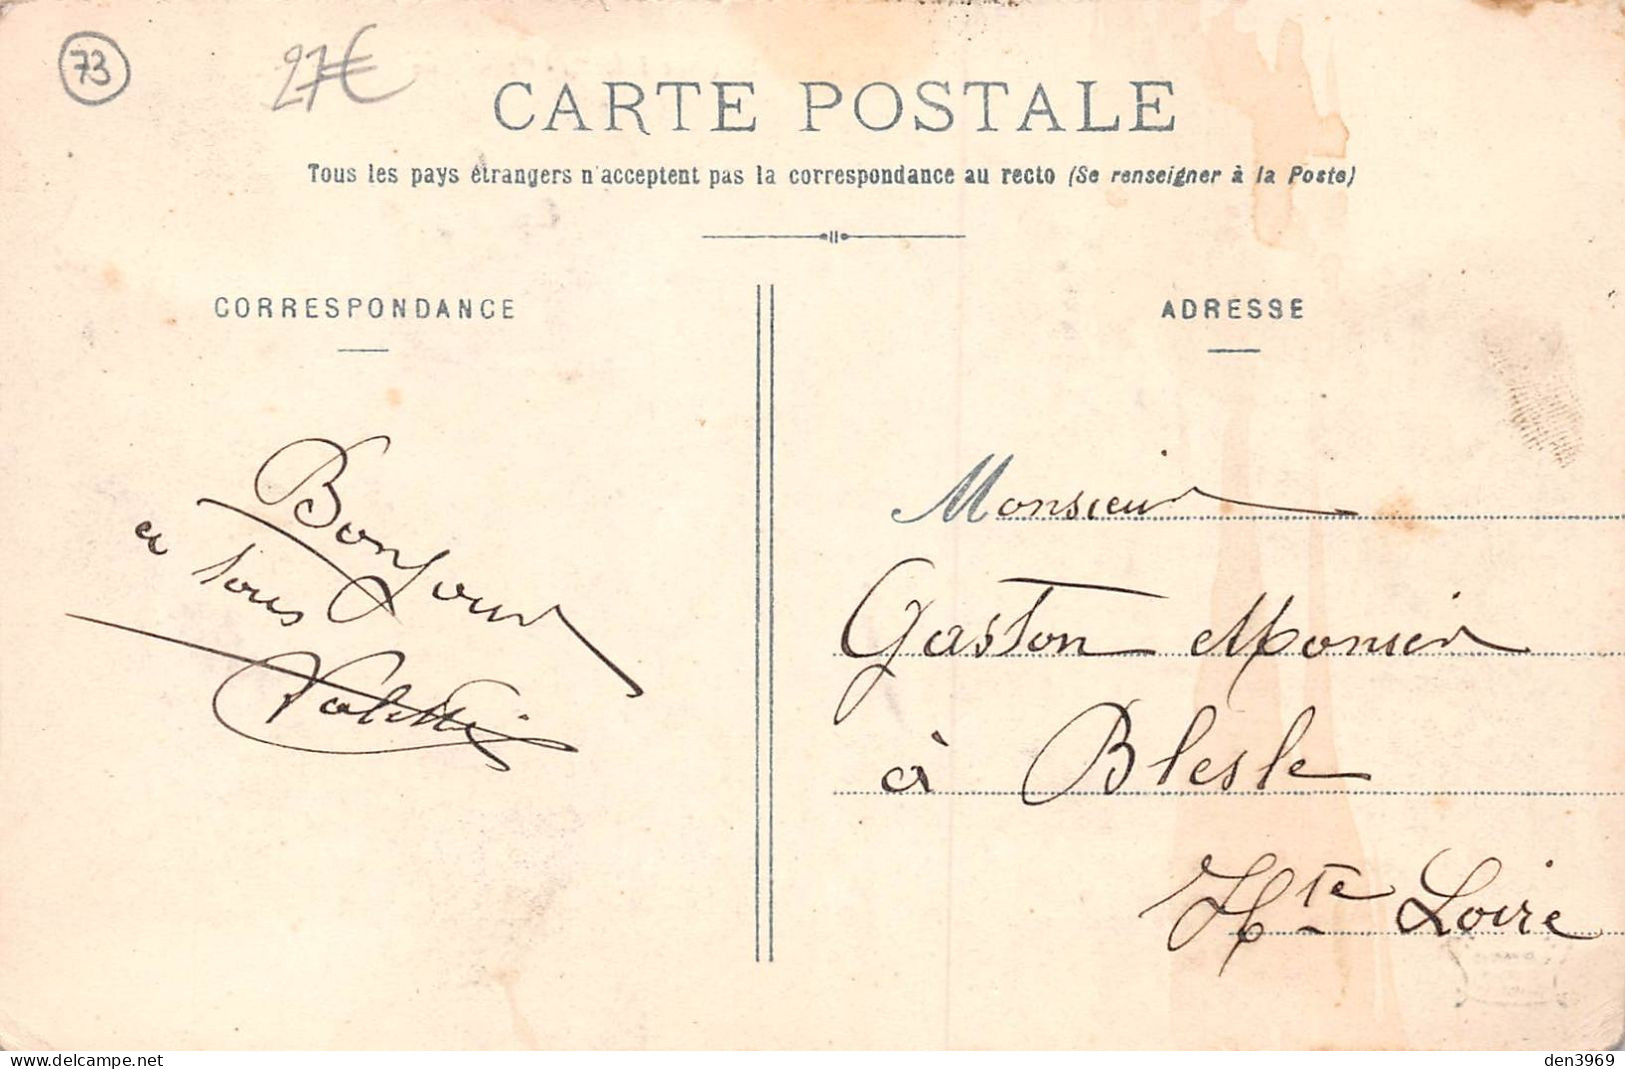 73
27€
CARTE POSTALE
Tous les pays étrangers n'acceptent pas la correspondance au recto (Se renseigner à la Poste)
CORRESPONDANCE
Bonjour
a tous
ADRESSE
Monsieur
Gaston Monier
à Blesle
Hte Loire
www.delcampe.net
den3969